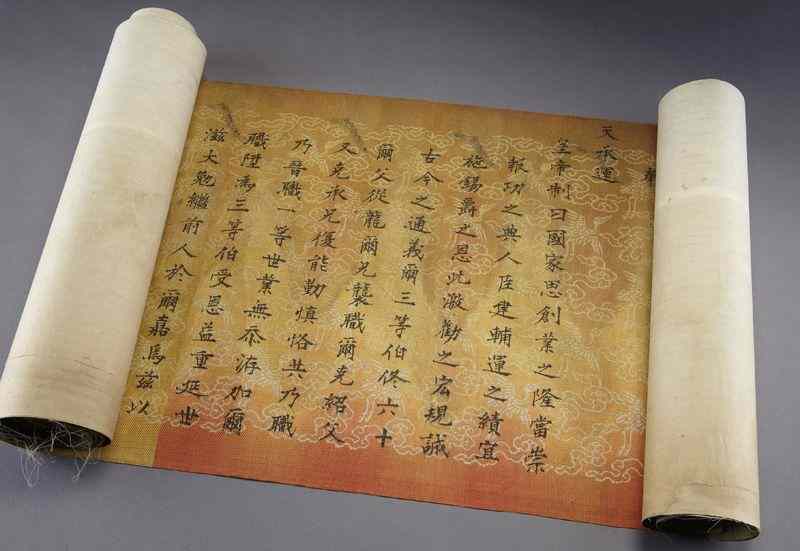 奉
天承運
皇帝制曰國家思創業之隆當崇
報功之典人臣建輔運之績宜
施錫爵之恩此激勸之宏規誠
古今之通義爾三等伯佟六十
爾父從龍爾兄襲職爾克紹父
又克承兄復能勤慎恪共乃職
乃晉職一等世業無忝洊加爾
職陞為三等伯受恩益重延世
滋大勉繼前人於爾嘉焉茲以